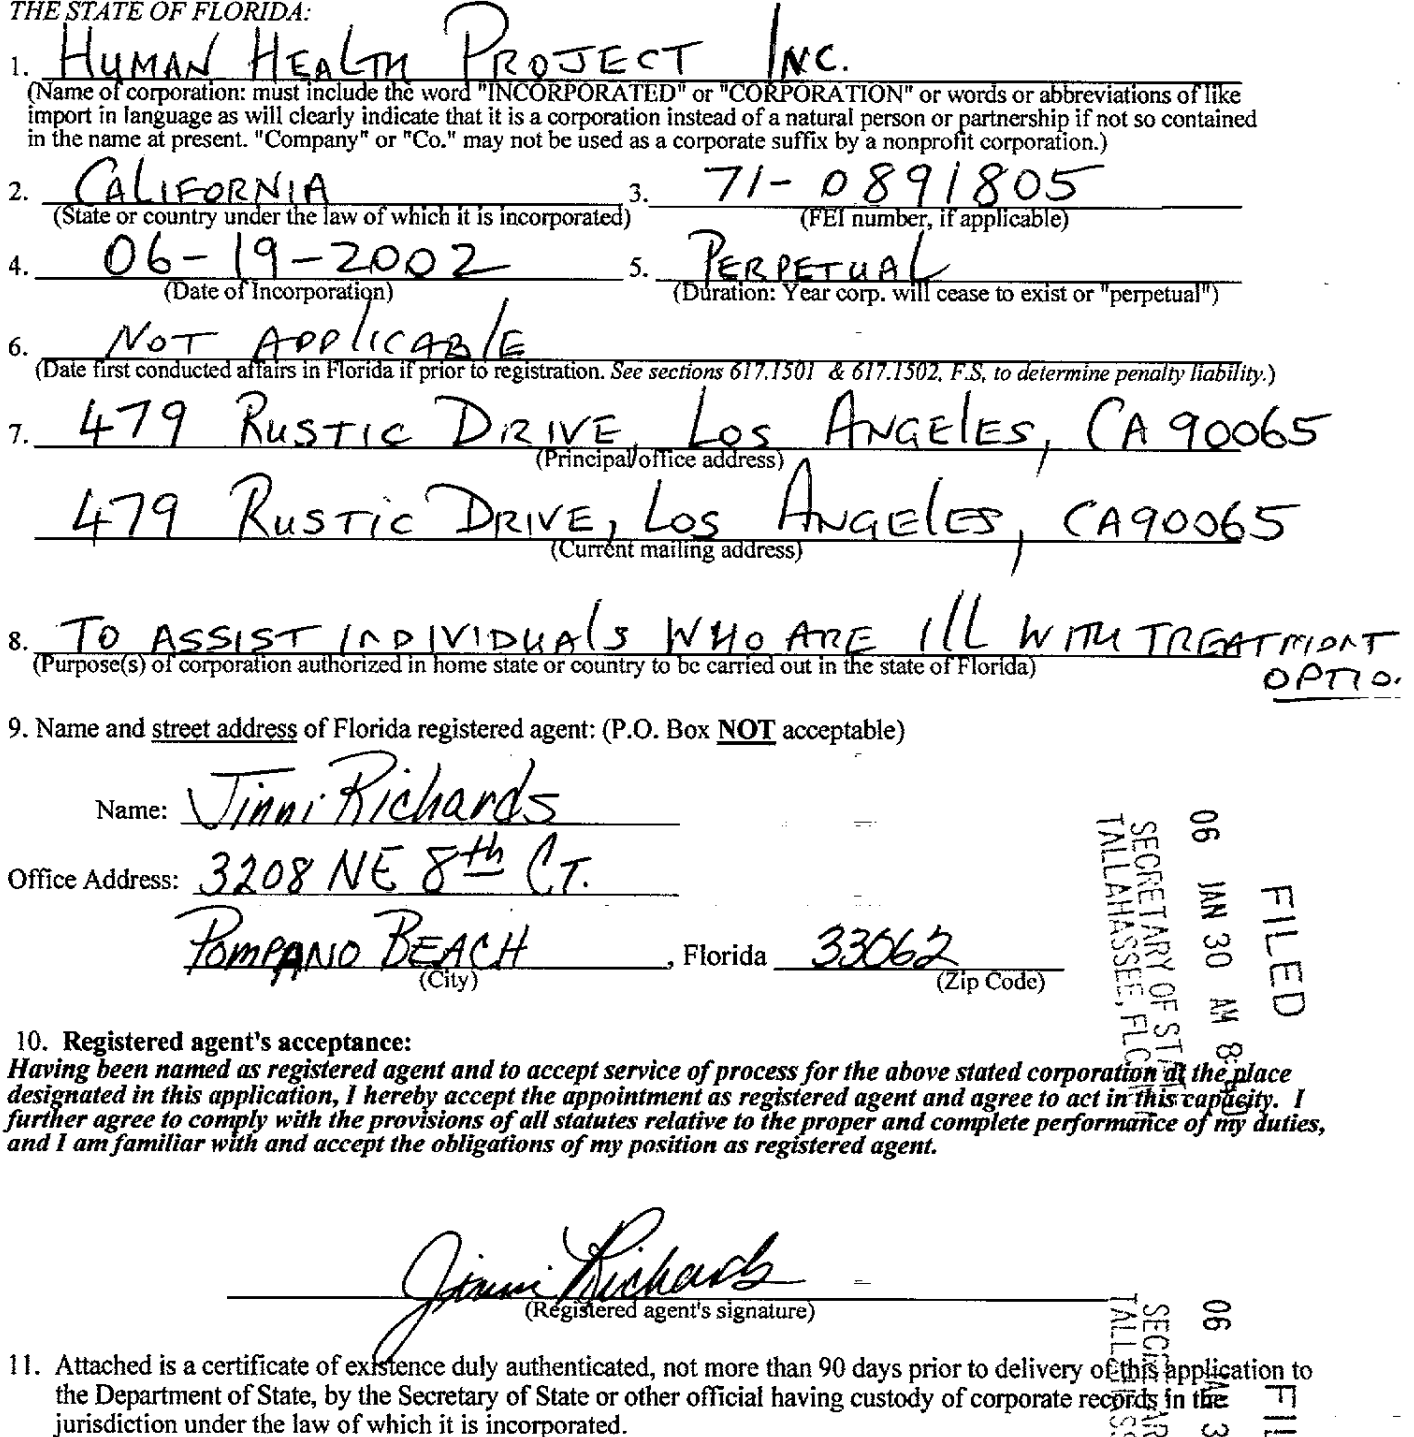 THE STATE OF FLORIDA:
1. HUMAN HEALTH PROJECT INC.
(Name of corporation: must include the word "INCORPORATED" or "CORPORATION" or words or abbreviations of like
import in language as will clearly indicate that it is a corporation instead of a natural person or partnership if not so contained
in the name at present. "Company" or "Co." may not be used as a corporate suffix by a nonprofit corporation.)
2. CALIFORNIA 3. 71-0891805
(State or country under the law of which it is incorporated) (FEI number, if applicable)
4. 06-19-2002 5. PERPETUAL
(Date of Incorporation) (Duration: Year corp. will cease to exist or "perpetual")
6. NOT APPLICABLE
(Date first conducted affairs in Florida if prior to registration. See sections 617.1501 & 617.1502, F.S, to determine penalty liability.)
7. 479 RUSTIC DRIVE, LOS ANGELES, CA 90065
(Principal office address)
479 RUSTIC DRIVE, LOS ANGELES, CA 90065
(Current mailing address)
8. TO ASSIST INDIVIDUALS WHO ARE ILL WITH TREATMENT
OPTIO.
(Purpose(s) of corporation authorized in home state or country to be carried out in the state of Florida)
9. Name and street address of Florida registered agent: (P.O. Box NOT acceptable)
Name: Jinni Richards
Office Address: 3208 NE 8th CT.
POMPANO BEACH, Florida 33062
(City) (Zip Code)
FILED
06 JAN 30 AM 8:
SECRETARY OF STA
TALLAHASSEE, FLO
10. Registered agent's acceptance:
Having been named as registered agent and to accept service of process for the above stated corporation at the place
designated in this application, I hereby accept the appointment as registered agent and agree to act in this capacity. I
further agree to comply with the provisions of all statutes relative to the proper and complete performance of my duties,
and I am familiar with and accept the obligations of my position as registered agent.
Jinni Richards
(Registered agent's signature)
11. Attached is a certificate of existence duly authenticated, not more than 90 days prior to delivery of this application to
the Department of State, by the Secretary of State or other official having custody of corporate records in the
jurisdiction under the law of which it is incorporated.